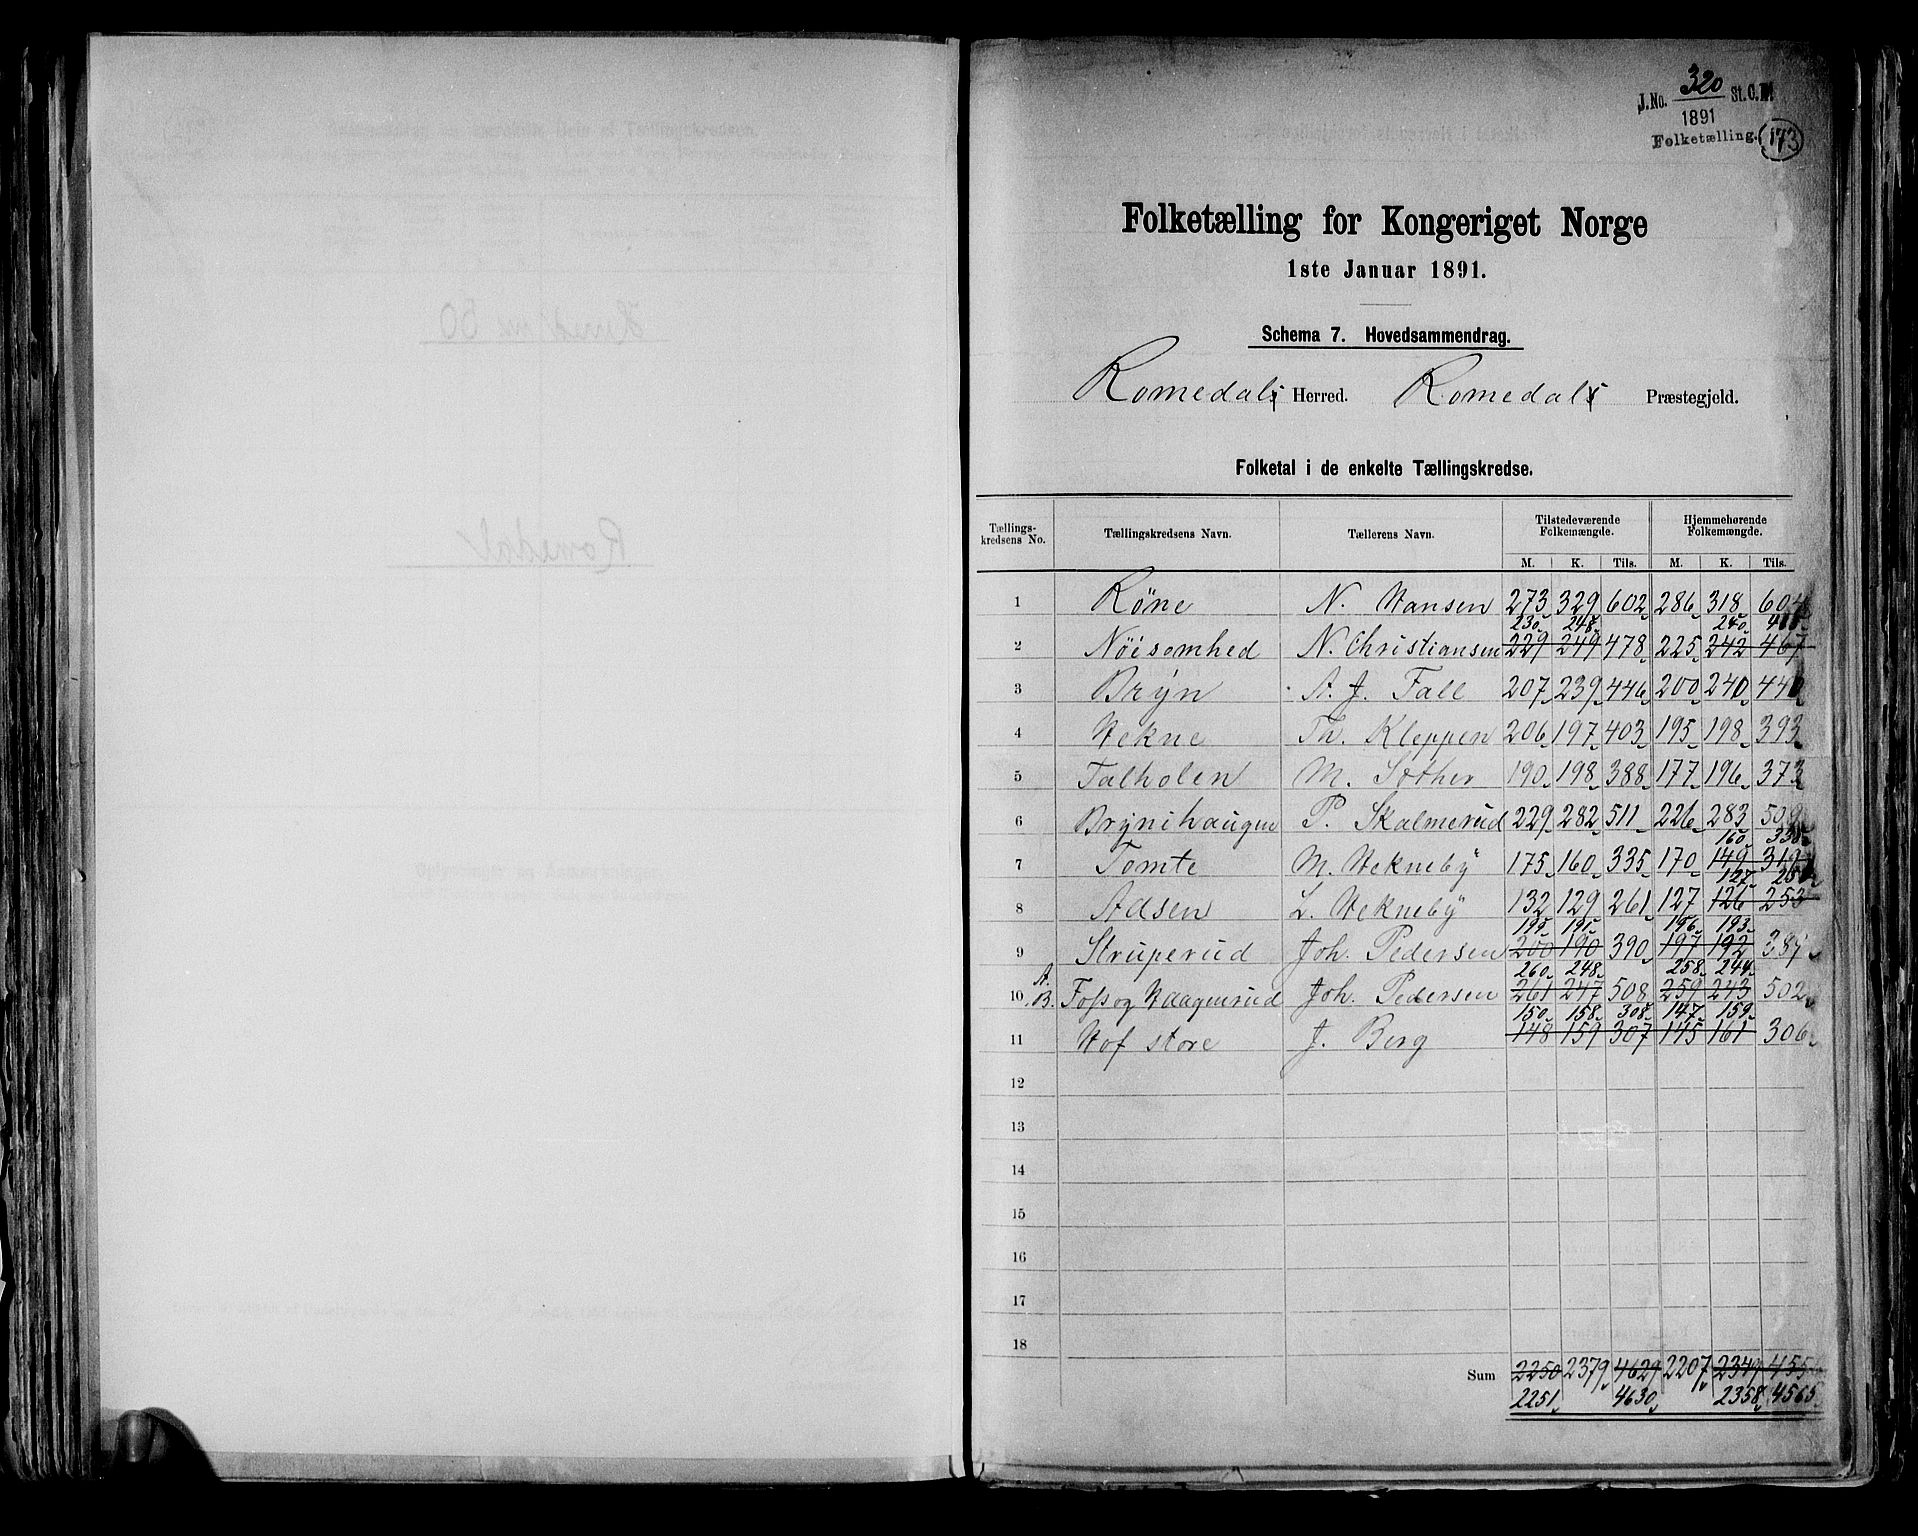 J. No. 320 St. C. B.
1891
Folketælling. 173
Folketælling for Kongeriget Norge
1ste Januar 1891.
Schema 7. Hovedsammendrag.
Romedals Herred. Romedals Præstegjeld.
Folketal i de enkelte Tællingskredse.
Tællings-kredsens No. Tællingskredsens Navn. Tællerens Navn. Tilstedeværende Folkemængde. Hjemmehørende Folkemængde.
M. K. Tils. M. K. Tils.
1 Røne N. Hansen 273 329 602 286 318 604
230 248 240
2 Nøisomhed N. Christiansen 229 249 478 225 242 467
3 Bryn A. J. Fall 207 239 446 200 240 440
4 Hekne Th. Kleppen 206 197 403 195 198 393
5 Talholen M. Sother 190 198 388 177 196 373
6 Brynihaugen P. Skalmerud 229 282 511 226 283 509
160 330
7 Tomte M. Hekneby 175 160 335 170 149 319
127
8 Adsen L. Hekneby 132 129 261 127 126 253
199 191 196 193
9 Struperud Joh. Pedersen 200 190 390 197 192 389
A. 260 248 258 244
10. B. Foss og Haagenrud Joh. Pedersen 261 247 508 259 243 502
150 158 308 147 159
11 Hof store J. Berg 148 159 307 145 161 306
12
13
14
15
16
17
18
Sum 2250 2379 4629 2207 2349 455
2251 4630 2358 4565
Romedal